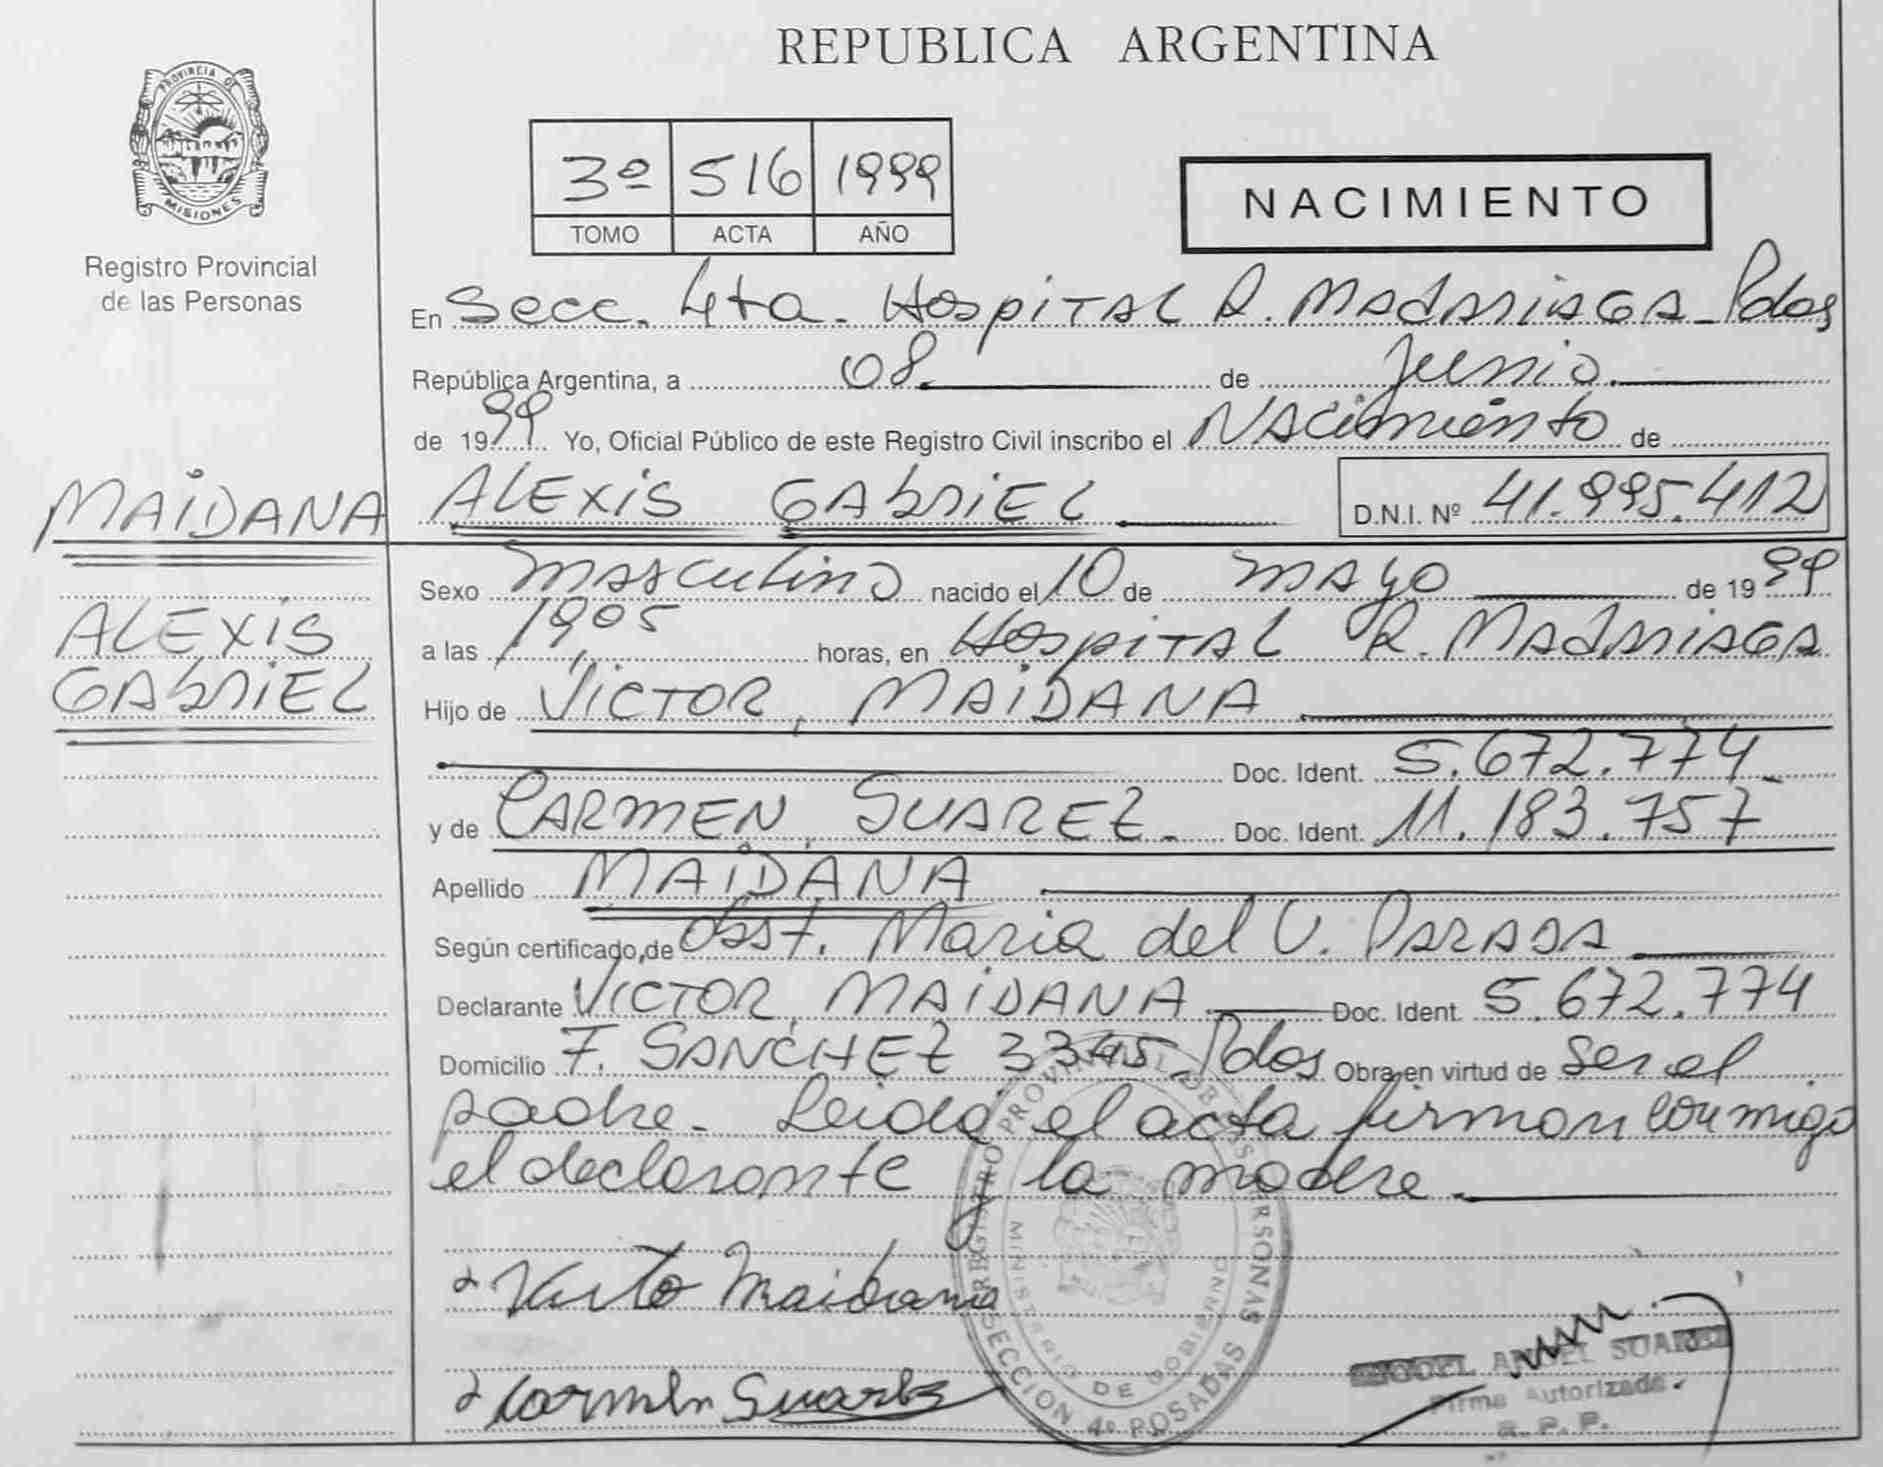 REPUBLICA ARGENTINA
PROVINCIA DE
MISIONES
Registro Provincial
de las Personas
3º 516 1999
TOMO ACTA AÑO
NACIMIENTO
En Secc. 4ta. Hospital R. Madariaga - Pdas
República Argentina, a 08 de Junio
de 1999 Yo, Oficial Público de este Registro Civil inscribo el Nacimiento de
MAIDANA ALEXIS GABRIEL D.N.I. Nº 41.995.412
Sexo masculino nacido el 10 de mayo de 1999
ALEXIS
a las 1905 horas, en Hospital R. Madariaga
GABRIEL
Hijo de VICTOR, MAIDANA
Doc. Ident. 5.672.774
y de CARMEN, SUAREZ. Doc. Ident. 11.183.757
Apellido MAIDANA
Según certificado,de Obst. Maria del V. Parada
Declarante VICTOR, MAIDANA Doc. Ident. 5.672.774
Domicilio F. SANCHEZ 3345 Pdas Obra en virtud de ser el
padre. Leida el acta firman conmigo
el declarante y la madre.
Maidana
Carmen Suarez
REGISTRO PROVINCIAL DE LAS PERSONAS
MINISTERIO DE GOBIERNO
SECCION 4º POSADAS
ANGEL SUAREZ
Firma Autorizada
R. P. P.